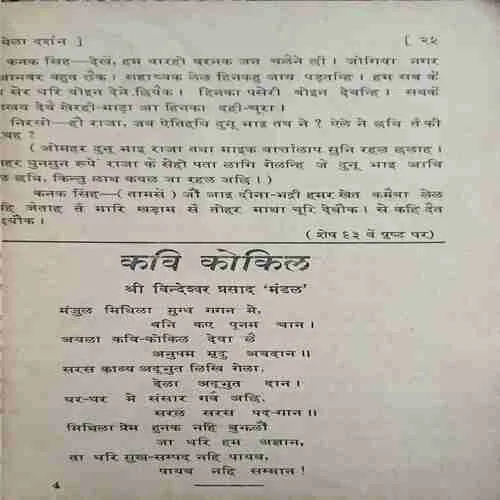 थला दर्शन ]
[ २५
कनक सिंह—देखें, हम बारहो बरनक जन चलैने ली। जोगिया नगर
जानवर बहुत छैक। सहाय्यक लेल हिनकहु जाय पड़तन्हि। हम सब कें
सेर धरि बोइन देने छियैक। हिनका पसेरी बोइन देबन्हि। सबकें
देबै खेरही-भाड़ा आ हिनका दही-चूरा।
निरसो—हौ राजा, जब ऐतिहथि दुनू भाइ तब ने ? ऐले ने छथि तँ की
( ओमहर दुनू भाइ राजा तथा माइक वार्तालाप सुनि रहल छलाह।
हर बुनमुन रूपें राजा कें सेहो पता लागि गेलन्हि जे दुनू भाइ आबि
ल छथि, किन्तु लाथ कयल जा रहल अछि। )
कनक सिंह—( तामसें ) जौं आइ दीना-भद्री हमर खेत कमैबा लेल
हि जेताह तँ मारि खड़ाम सँ तोहर माथा चूरि देबौक। से कहि दैत
( शेष ६३ वें पृष्ठ पर )
कवि कोकिल
श्री विन्देश्वर प्रसाद ‘मंडल’
मंजुल मिथिला मुग्ध गगन मे,
बनि कए पूनम चान।
अयला कवि-कोकिल देवा लै
अनुपम मृदु अवदान॥
सरस काव्य अद्भुत लिखि गेला,
देला अद्भुत दान।
घर-घर मे संसार गबै अछि,
सरल सरस पद-गान॥
मिथिला प्रेम हुनक नहि बुझलौं
जा धरि हम अज्ञान,
ता धरि सुख-सम्पद नहि पायब,
पायब नहि सम्मान !
4